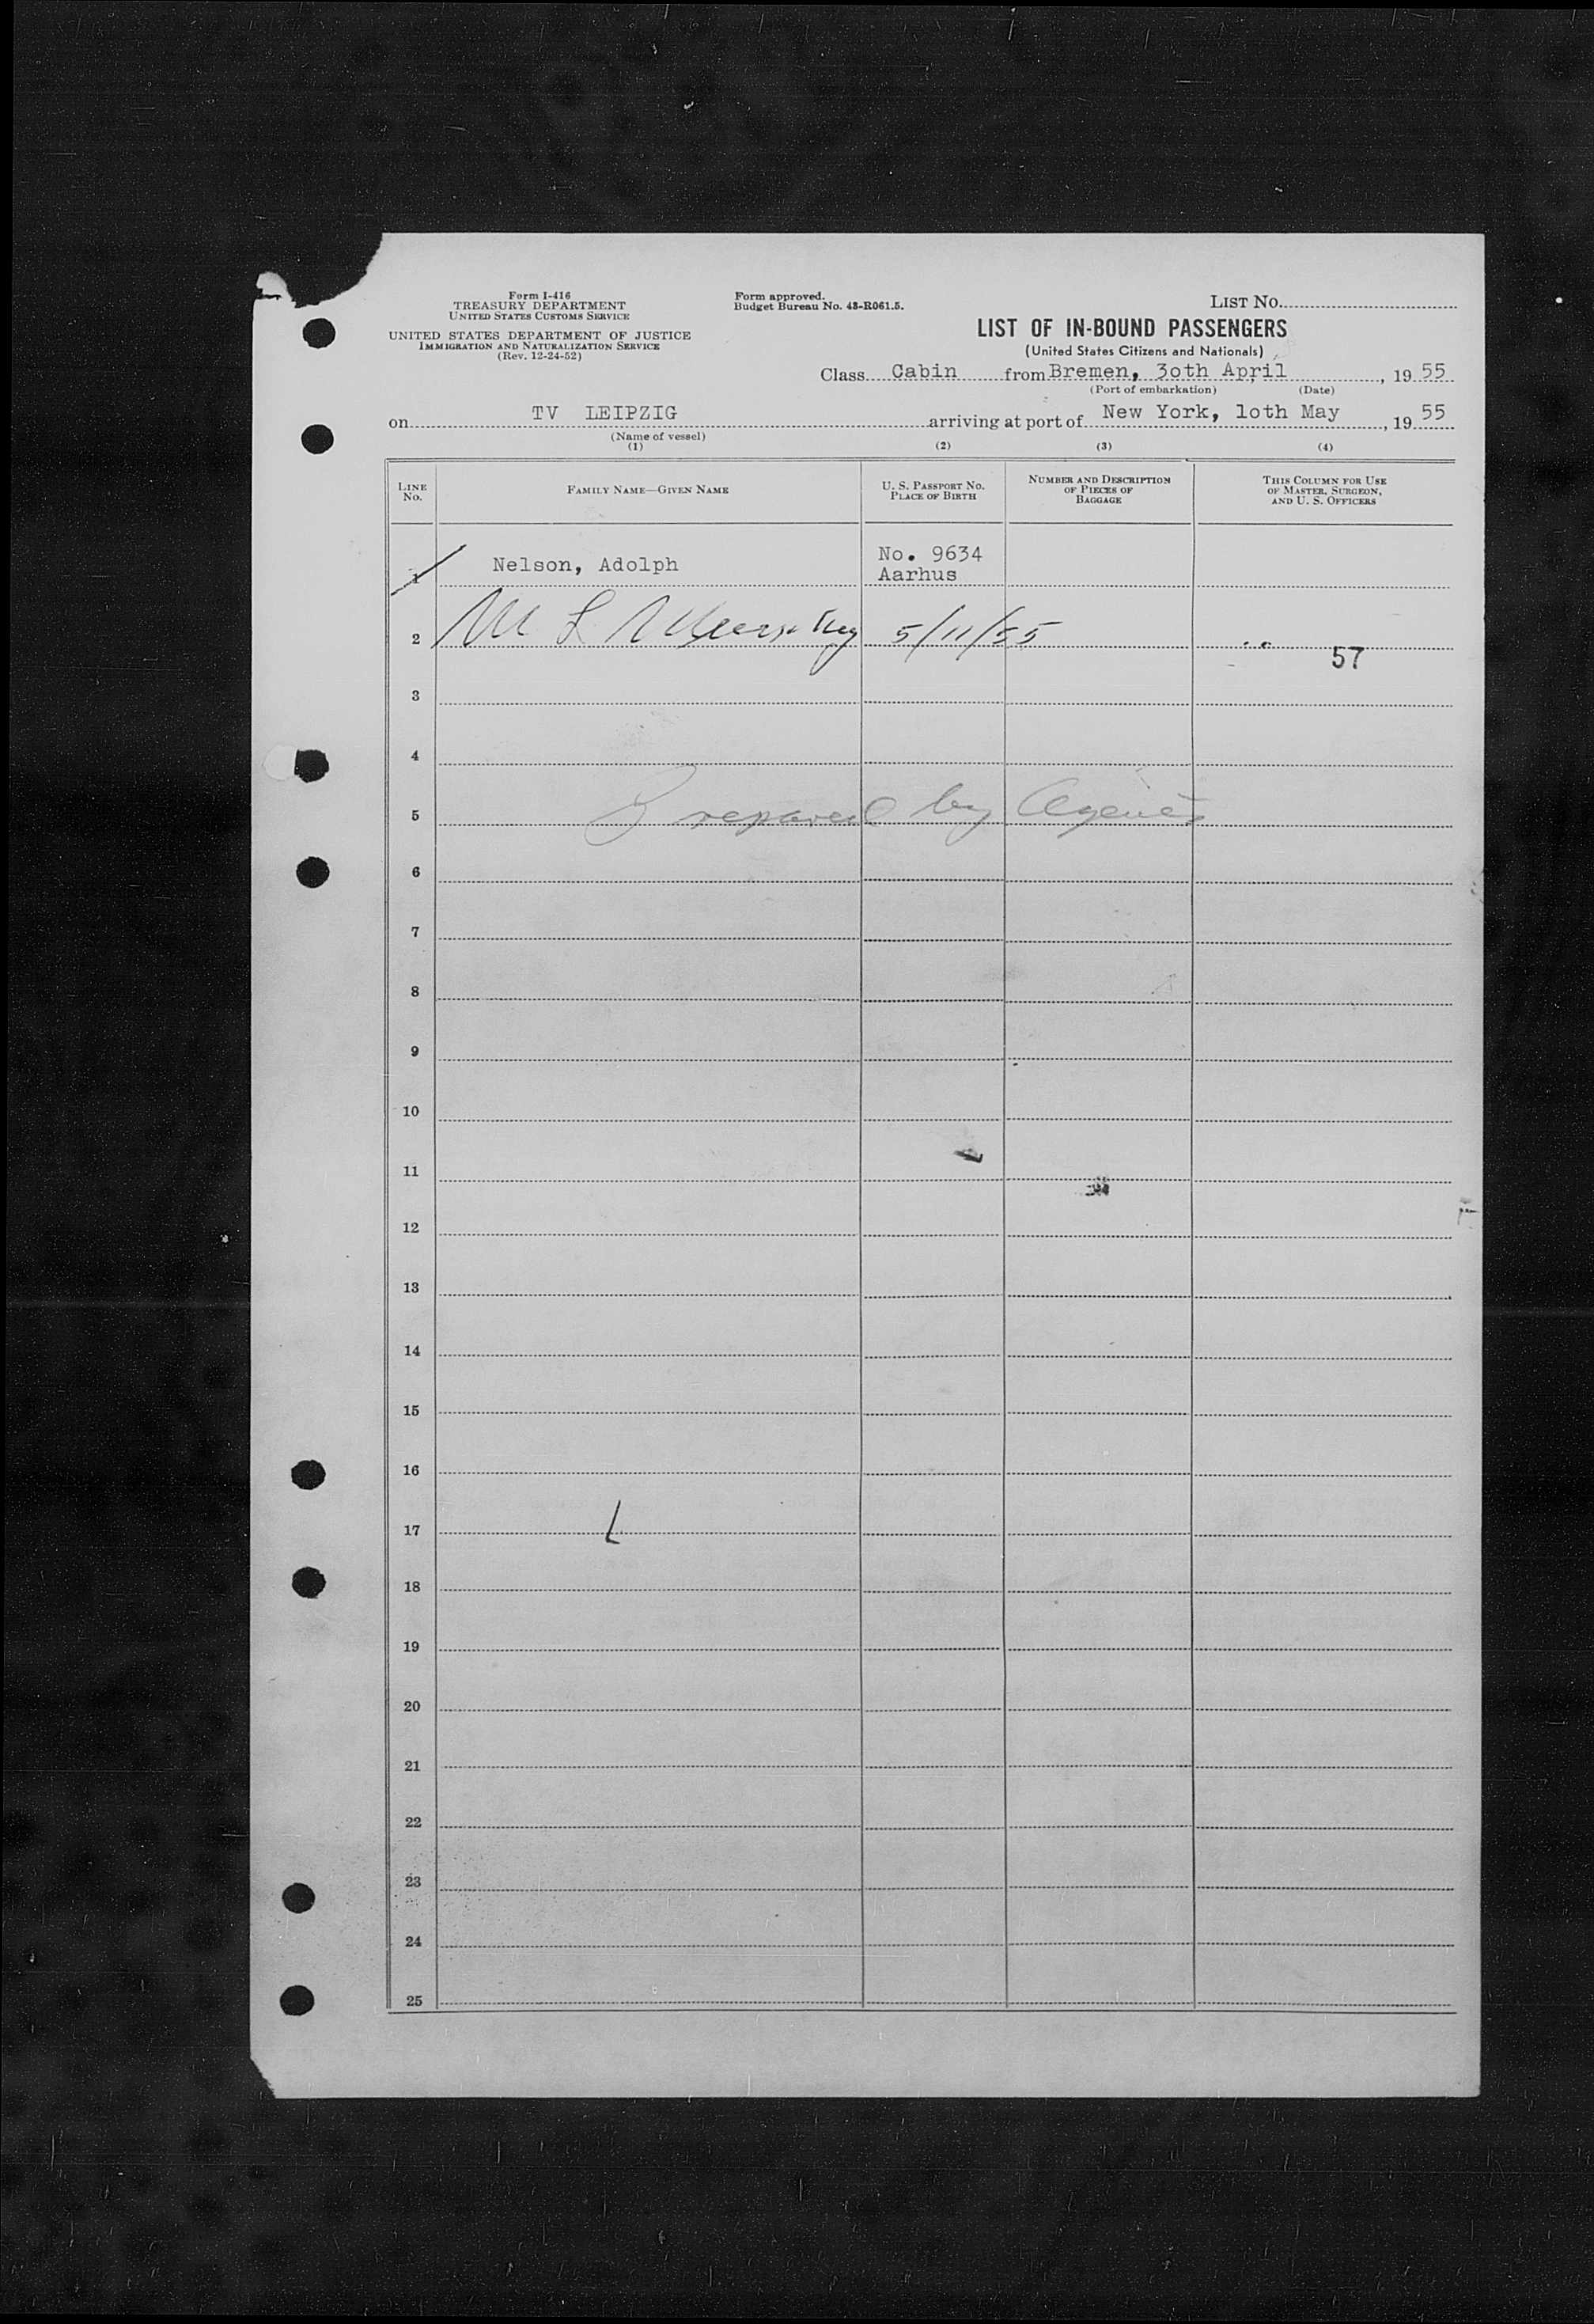 Form I-416
TREASURY DEPARTMENT
UNITED STATES CUSTOMS SERVICE
UNITED STATES DEPARTMENT OF JUSTICE
IMMIGRATION AND NATURALIZATION SERVICE
(Rev. 12-24-52)
Form approved.
Budget Bureau No. 43-R061.5.
LIST NO.
LIST OF IN-BOUND PASSENGERS
(United States Citizens and Nationals)
Class Cabin from Bremen, 3oth April, 19 55
(Port of embarkation) (Date)
on TV LEIPZIG arriving at port of New York, 1oth May, 19 55
(Name of vessel)
(1) (2) (3) (4)
LINE No. FAMILY NAME—GIVEN NAME U. S. PASSPORT NO. PLACE OF BIRTH NUMBER AND DESCRIPTION OF PIECES OF BAGGAGE THIS COLUMN FOR USE OF MASTER, SURGEON, AND U. S. OFFICERS
1 Nelson, Adolph No. 9634 Aarhus
2 M L 5/11/55
57
3
4
5 Prepared by Agents
6
7
8
9
10
11
12
13
14
15
16
17
18
19
20
21
22
23
24
25